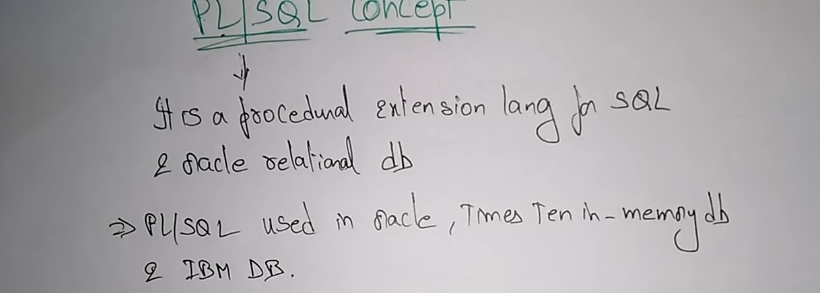 PL/SQL Concept
It is a procedural extension lang for SQL
& oracle relational db
⇒ PL/SQL used in oracle, Times Ten in-memory db
& IBM DB.